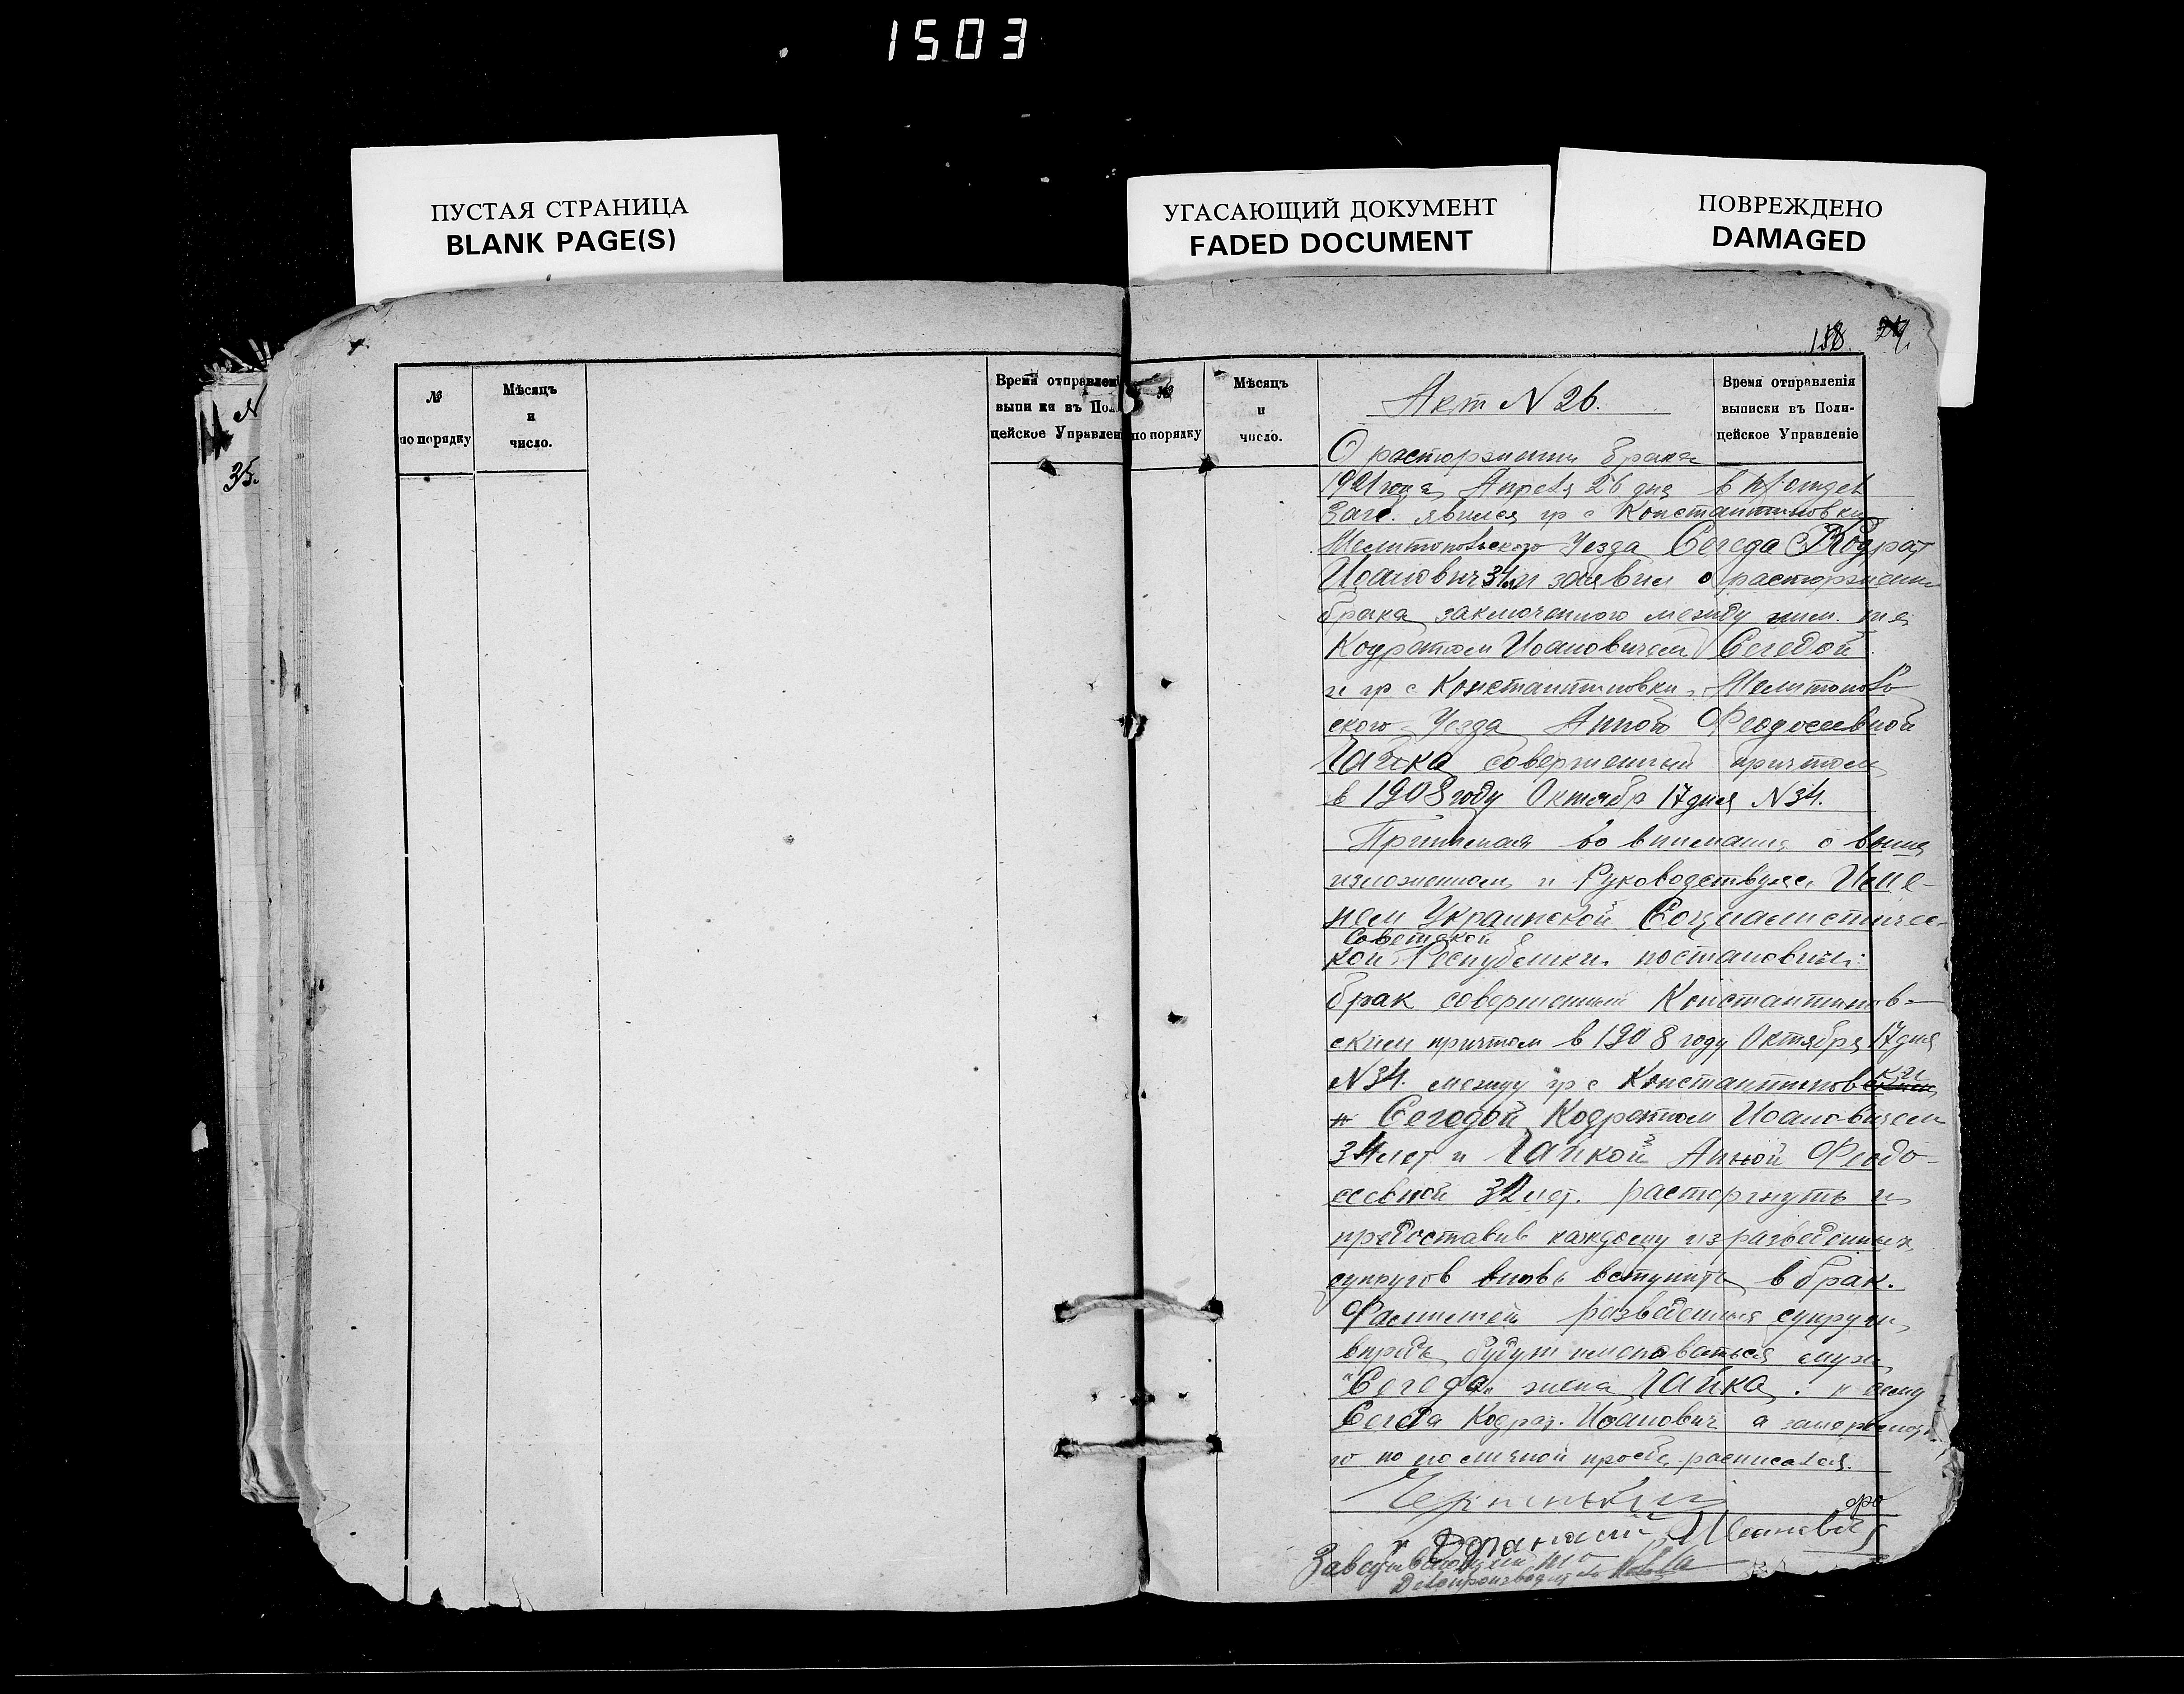 1503
ПУСТАЯ СТРАНИЦА
BLANK PAGE(S)
УГАСАЮЩИЙ ДОКУМЕНТ
FADED DOCUMENT
ПОВРЕЖДЕНО
DAMAGED
N
35.
№
по порядку
Мѣсяцъ
и
число.
Время отправлен
выпи ки въ Пол
цейское Управлен
158
№
по порядку
Мѣсяцъ
и
число.
Время отправленія
выписки въ Поли-
цейское Управленіе
Акт N 26.
О расторжении брака
1921 года Апреля 26 дня в
Загс. явился гр с Константиновки
Мелитопольского Уезда Сегеда Кодрат
Иоанович 34 и заявил о расторжении
брака заключенного между ним
Кодратом Иоановичем Сегедой
и гр с Константиновки, Мелитополь
ского Уезда Анной Феодосевной
Гайка совершенный причтом
в 1908 году Октября 17 дня N 34.
Принимая во внимание о выше
изложенном и Руководствуясь Име-
нем Украинской Социалистичес-
Советской
кой Республики постановил:
брак совершенный Константинов-
ским причтом в 1908 году Октября 17 дня
N 34. между гр с Константинов ки
Сегедой Кодратом Иоановичем
34 лет и Гайкой Анной Феодо-
севной 32 лет. расторгнуть и
предоставив каждому из разведенных
супругов вновь вступить в брак.
Фамилией разведенные супруги
впредь будут именоваться муж
"Сегеда" жена Гайка.
Сегеда Кодрат. Иоанович а
го по его личной просьбе расписался.
Афанасий Иванович
Заведывающий
Делопроизводитель